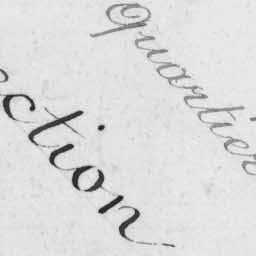 quartier
ction